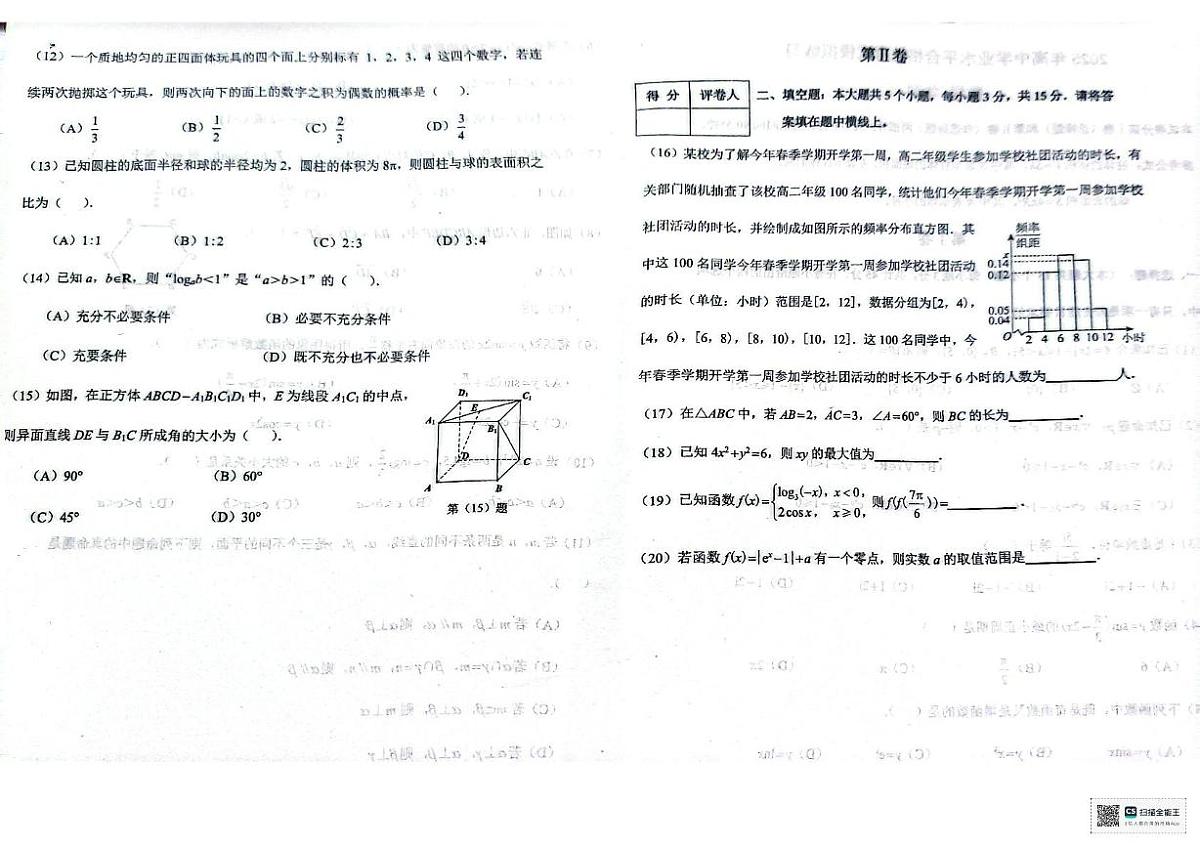 （12）一个质地均匀的正四面体玩具的四个面上分别标有 1，2，3，4 这四个数字，若连
续两次抛掷这个玩具，则两次向下的面上的数字之积为偶数的概率是（　　）.
（A）1/3 （B）1/2 （C）2/3 （D）3/4
（13）已知圆柱的底面半径和球的半径均为 2，圆柱的体积为 8π，则圆柱与球的表面积之
比为（　　）.
（A）1:1 （B）1:2 （C）2:3 （D）3:4
（14）已知 a，b∈R，则“logₐb<1”是“a>b>1”的（　　）.
（A）充分不必要条件 （B）必要不充分条件
（C）充要条件 （D）既不充分也不必要条件
（15）如图，在正方体 ABCD−A₁B₁C₁D₁ 中，E 为线段 A₁C₁ 的中点，
则异面直线 DE 与 B₁C 所成角的大小为（　　）.
（A）90°
（B）60°
（C）45°
（D）30°
D₁
C₁
E
A₁
B₁
D
C
A
B
第（15）题
第Ⅱ卷
得 分 评卷人
二、填空题：本大题共 5 个小题，每小题 3 分，共 15 分．请将答
案填在题中横线上．
（16）某校为了解今年春季学期开学第一周，高二年级学生参加学校社团活动的时长，有
关部门随机抽查了该校高二年级 100 名同学，统计他们今年春季学期开学第一周参加学校
社团活动的时长，并绘制成如图所示的频率分布直方图．其
中这 100 名同学今年春季学期开学第一周参加学校社团活动
的时长（单位：小时）范围是[2，12]，数据分组为[2，4)，
[4，6)，[6，8)，[8，10)，[10，12]．这 100 名同学中，今
年春季学期开学第一周参加学校社团活动的时长不少于 6 小时的人数为________人．
频率
组距
x
0.14
0.12
0.05
0.04
O 2 4 6 8 10 12 小时
（17）在△ABC 中，若 AB=2，AC=3，∠A=60°，则 BC 的长为________．
（18）已知 4x²+y²=6，则 xy 的最大值为________．
（19）已知函数 f(x)={log₃(−x)，x<0，2cos x，x≥0，则 f(f(7π/6))=________．
（20）若函数 f(x)=|eˣ−1|+a 有一个零点，则实数 a 的取值范围是________．
CS 扫描全能王